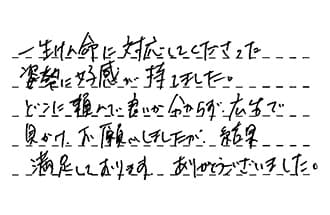 一生けん命に対応してくださった
姿勢に好感が持てました。
どこに頼んで良いか分からず、広告で
見かけ、お願いしましたが、結果
満足しております。ありがとうございました。